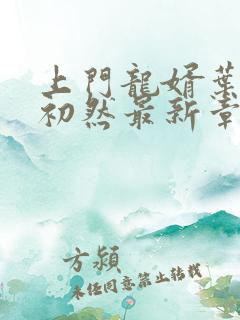 上門龍婿葉
初然最新章
方潁
未經同意禁止轉載